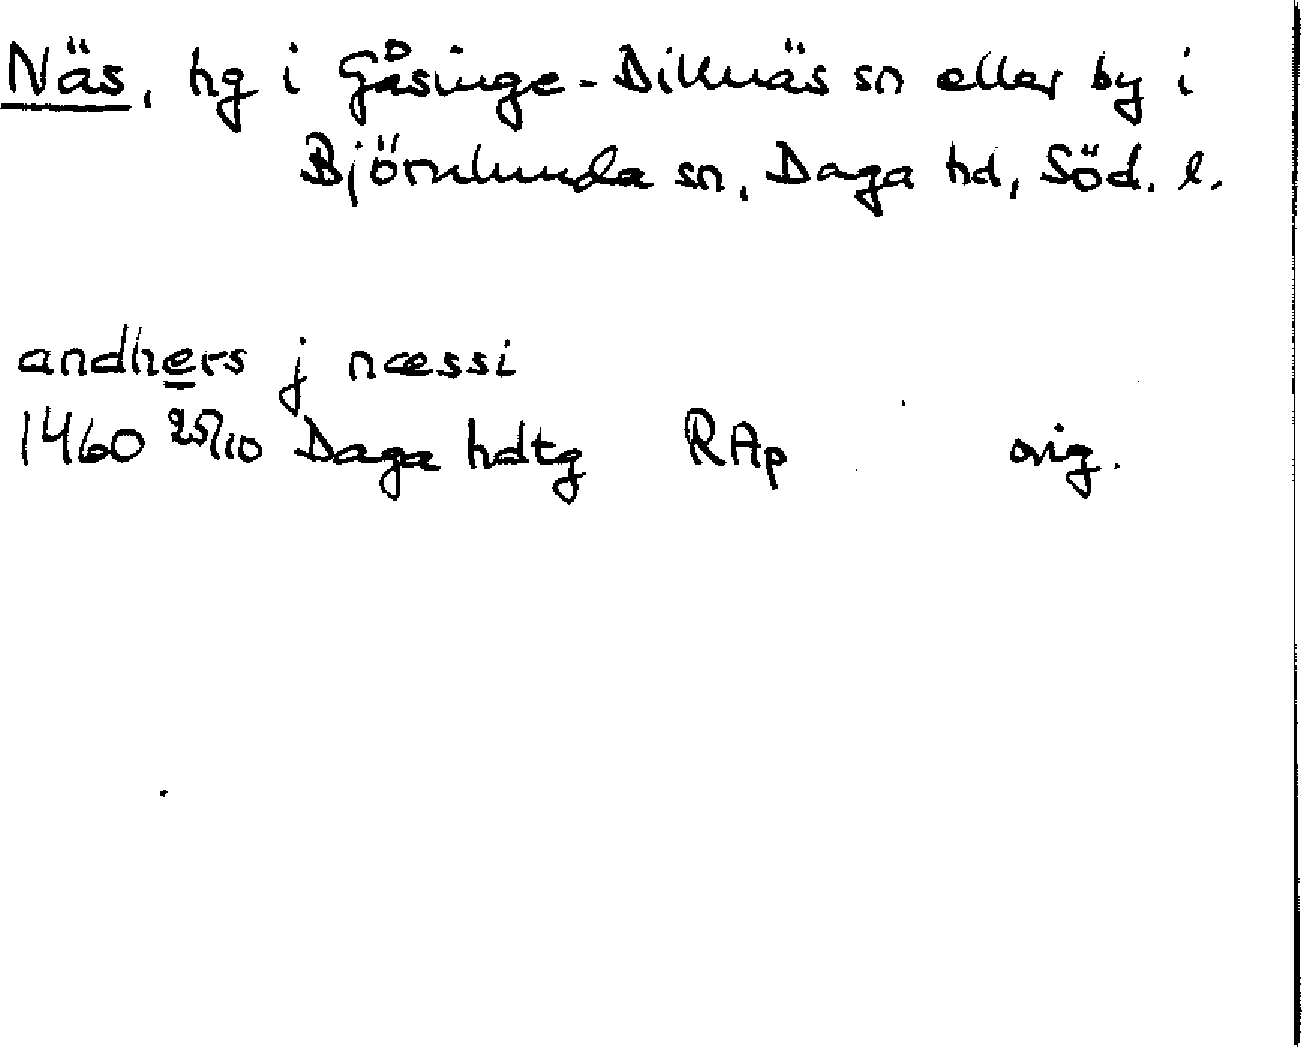 Näs, hg i Gåsinge-Dillnäs sn eller by i
Björnlunda sn, Daga hd, Söd. l.
andhers j næssi
1460 25/10 Daga hdtg RAp orig.